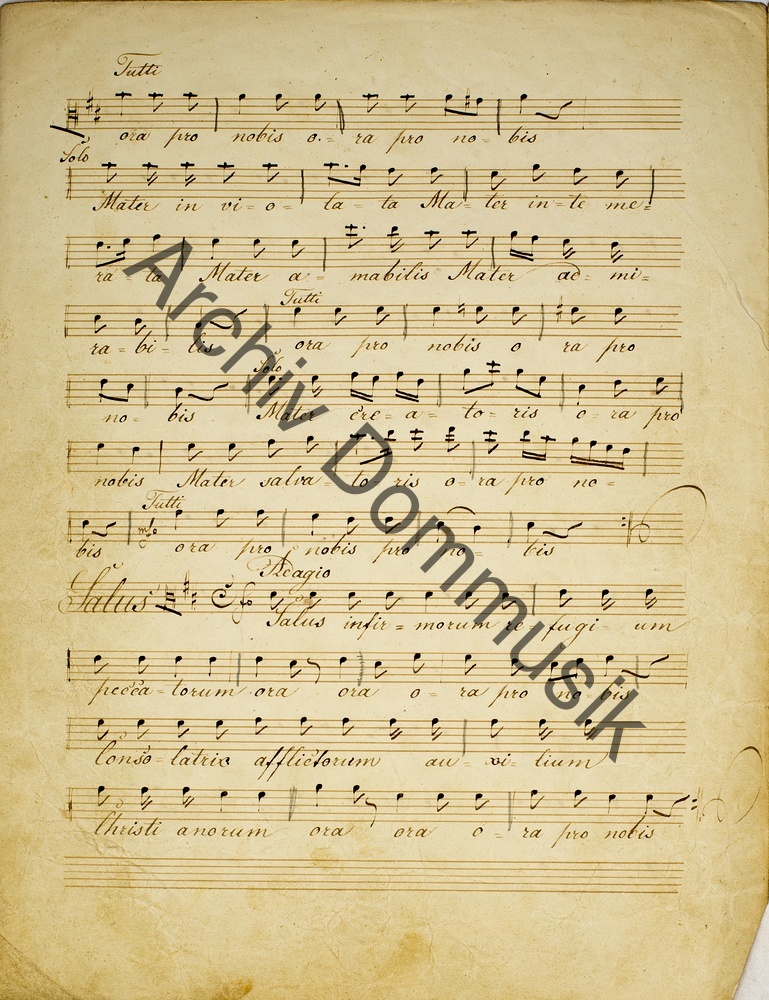 Tutti
ora pro nobis o - ra pro no - bis
Solo
Mater in vi = o = la = ta Ma = ter in = te me =
ra = ta Mater a = mabilis Mater ad = mi =
Tutti
ra = bi = lis ora pro nobis o ra pro
Solo
no = bis Mater cre = a = to = ris o = ra pro
nobis Mater salva = to = ris o = ra pro no =
Tutti
bis ora pro nobis pro no = bis
Adagio
Salus Salus infir = morum re = fugi = um
pecca = torum ora ora o = ra pro no = bis
Conso = latrix afflictorum au = xi = lium
Christi anorum ora ora o = ra pro nobis
Archiv Dommusik